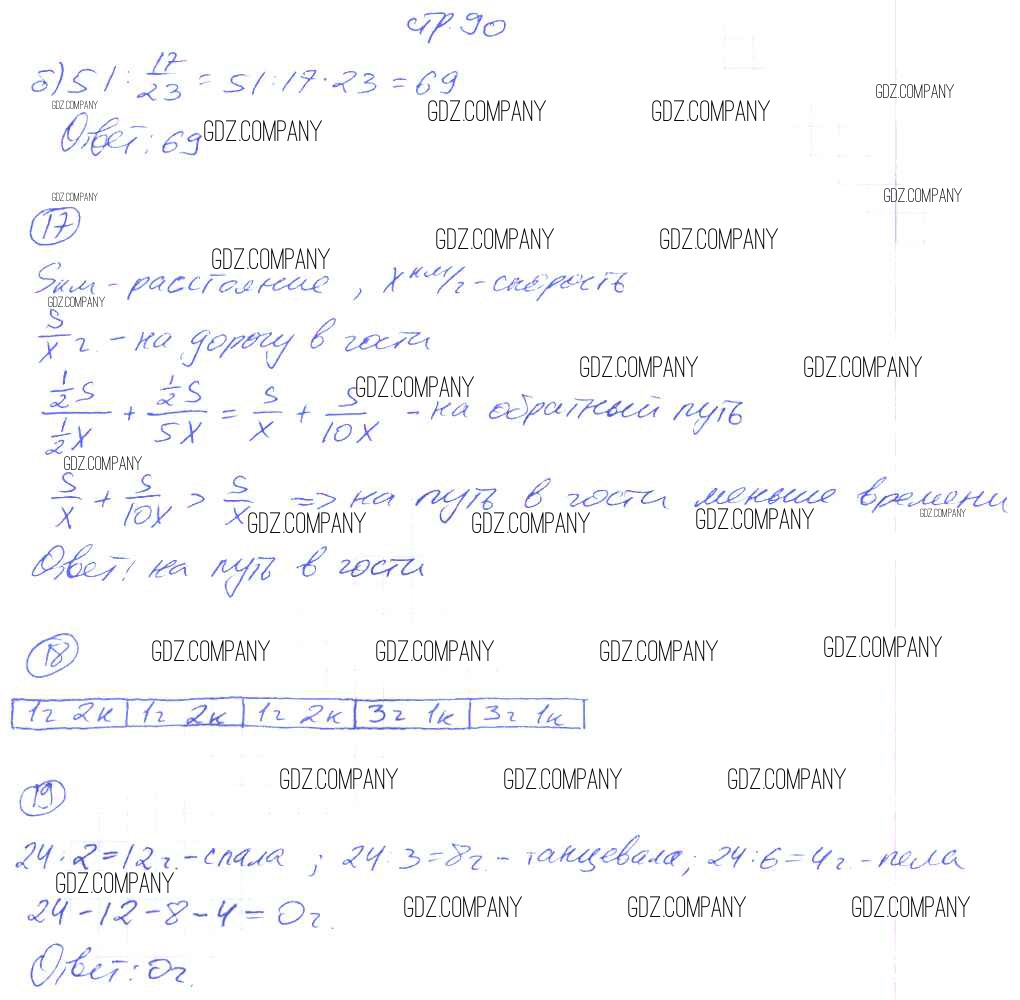 стр. 90
б) 51 : 17/23 = 51 : 17 · 23 = 69
GDZ.COMPANY GDZ.COMPANY GDZ.COMPANY GDZ.COMPANY
Ответ: 69 GDZ.COMPANY
GDZ.COMPANY GDZ.COMPANY
17
GDZ.COMPANY GDZ.COMPANY GDZ.COMPANY
Sкм - расстояние , x км/г - скорость
GDZ.COMPANY
S/x г. - на дорогу в гости
GDZ.COMPANY GDZ.COMPANY GDZ.COMPANY
(1/2 S)/(1/2 x) + (1/2 S)/(5x) = S/x + S/10x - на обратный путь
GDZ.COMPANY
S/x + S/10x > S/x => на путь в гости меньше времени
GDZ.COMPANY GDZ.COMPANY GDZ.COMPANY GDZ.COMPANY
Ответ: на путь в гости
18 GDZ.COMPANY GDZ.COMPANY GDZ.COMPANY GDZ.COMPANY
1г 2к 1г 2к 1г 2к 3г 1к 3г 1к
GDZ.COMPANY GDZ.COMPANY GDZ.COMPANY
19
24 : 2 = 12 г. - спала ; 24 : 3 = 8 г. - танцевала; 24 : 6 = 4 г. - пела
GDZ.COMPANY
24 - 12 - 8 - 4 = 0 г. GDZ.COMPANY GDZ.COMPANY GDZ.COMPANY
Ответ: 0г.